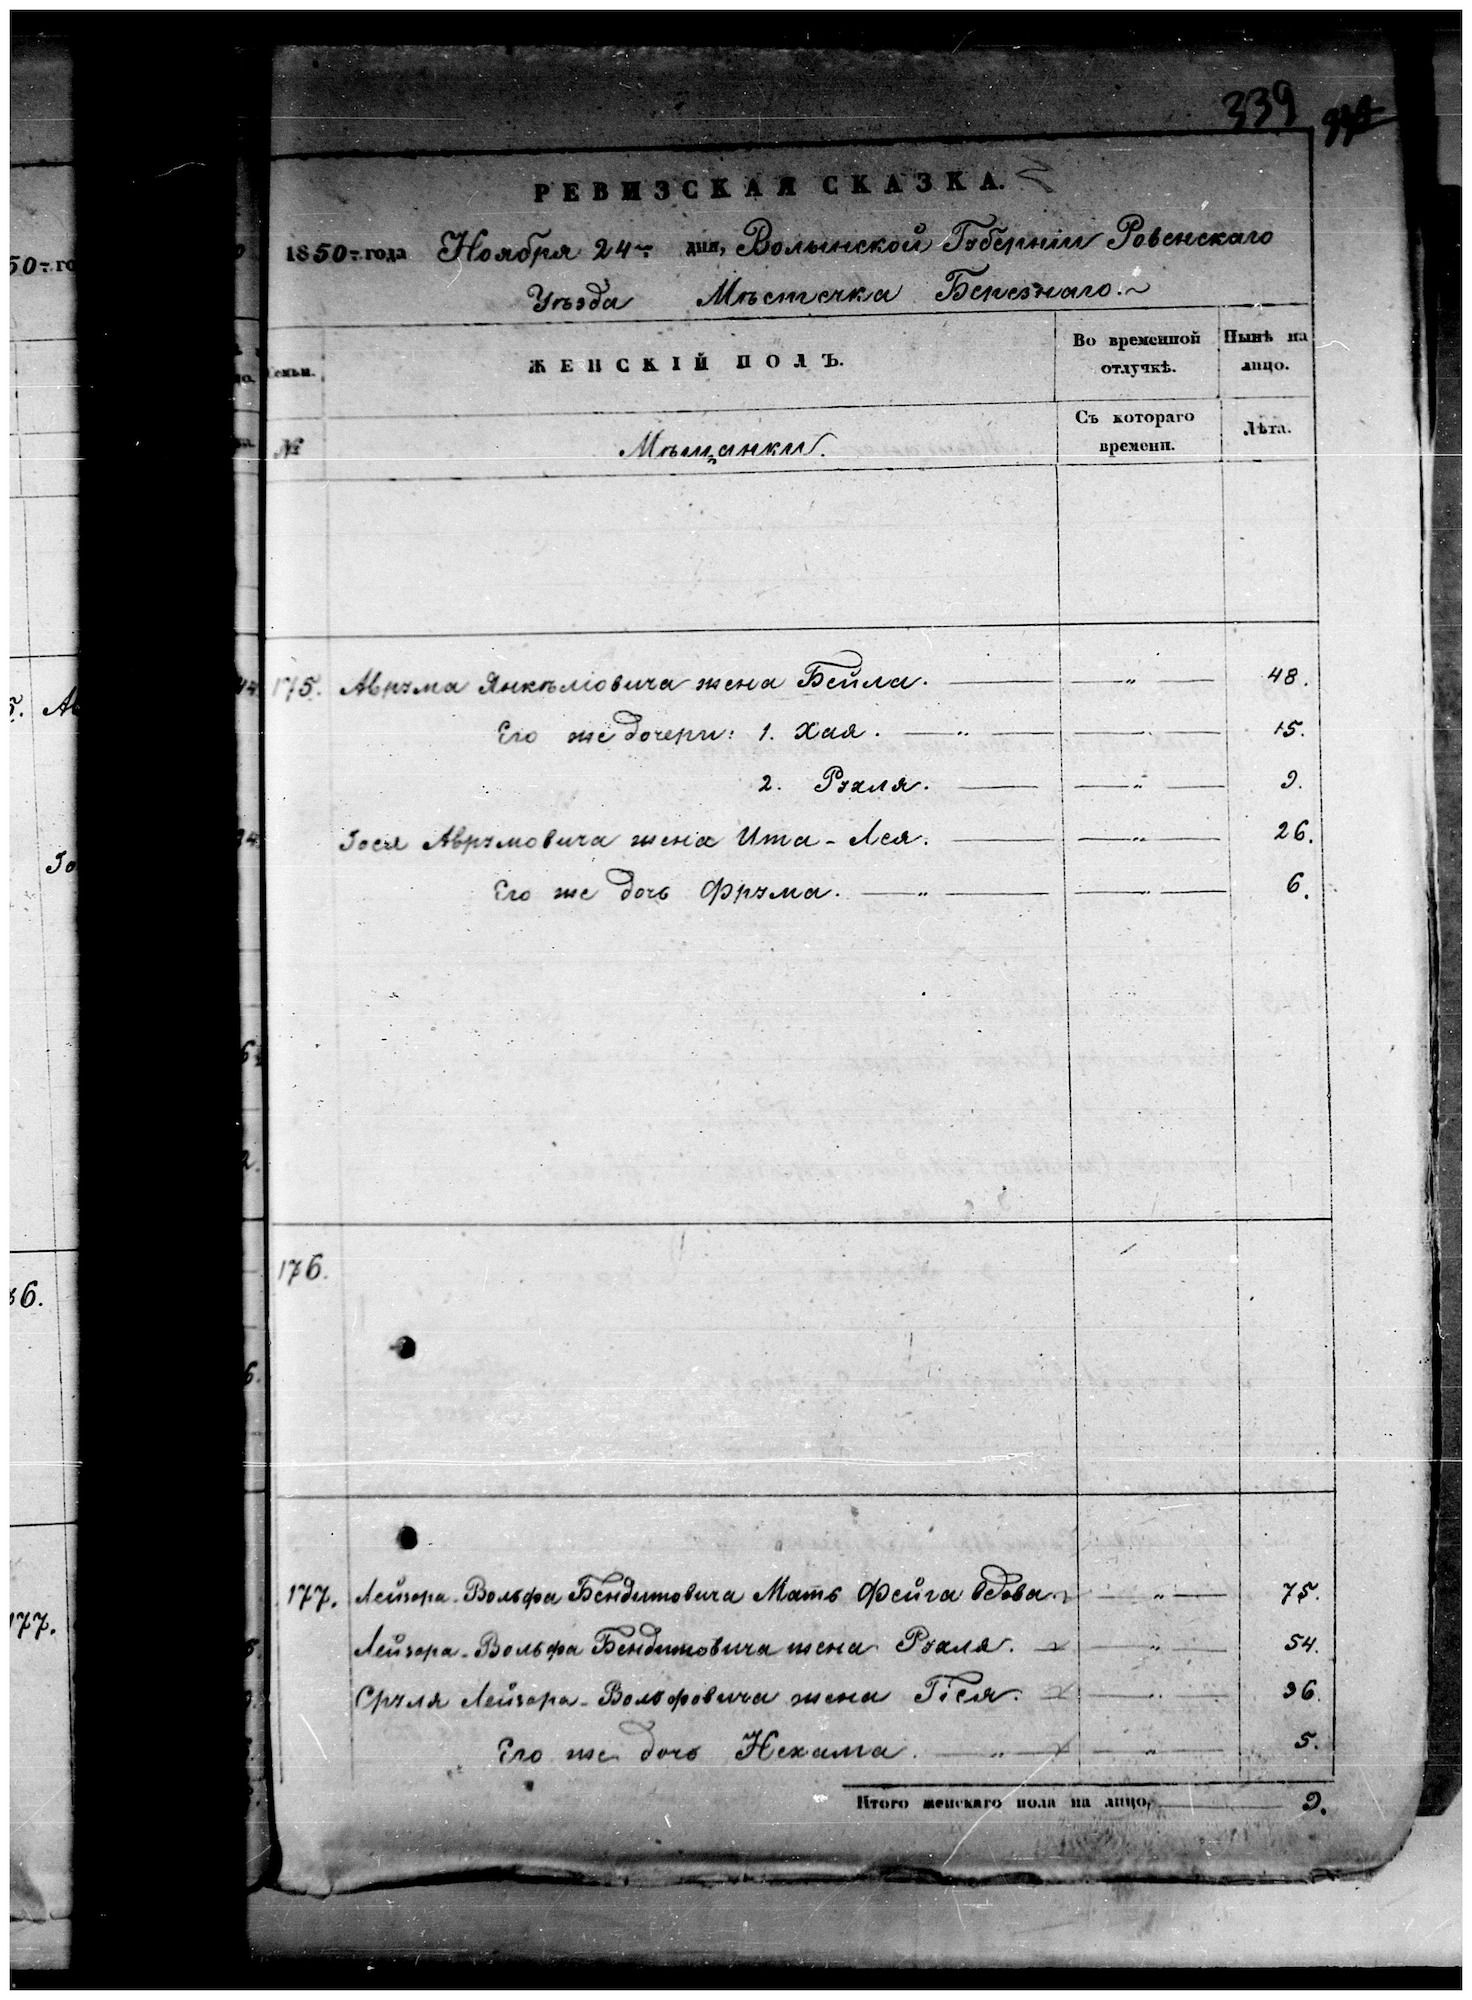 339
РЕВИЗСКАЯ СКАЗКА.
1850 года Ноября 24 дня, Волынской Губерніи Ровенскаго
Уѣзда Мѣстечка Березнаго.
Семьи. ЖЕНСКІЙ ПОЛЪ. Во временной отлучкѣ. Нынѣ на лицо.
№ Мѣщанки. Съ котораго времени. Лѣта.
175. Аврума Янкѣліовича жена Бейла. — " — 48.
Его же дочери: 1. Хая. — " — " — 15.
2. Рухля. — " — 9.
Іося Аврумовича жена Ита-Лея. — " — 26.
Его же дочь Фрума. — " — " — 6.
176.
177. Лейзора-Вольфа Бендитовича Мать Фейга вдова. — " — 75.
Лейзора-Вольфа Бендитовича жена Рухля. — " — 54.
Сруля Лейзора-Вольфовича жена Гися. — " — 36.
Его же дочь Нехама. — " — " — 5.
Итого женскаго пола на лицо, — 9.
50 го
5. Ав
Іо
177.